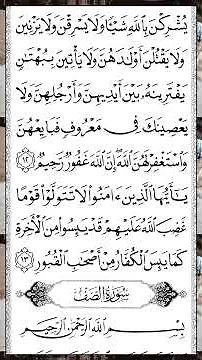 يُشْرِكْنَ بِٱللَّهِ شَيْـًٔا وَلَا يَسْرِقْنَ وَلَا يَزْنِينَ
وَلَا يَقْتُلْنَ أَوْلَٰدَهُنَّ وَلَا يَأْتِينَ بِبُهْتَٰنٍ
يَفْتَرِينَهُۥ بَيْنَ أَيْدِيهِنَّ وَأَرْجُلِهِنَّ وَلَا
يَعْصِينَكَ فِى مَعْرُوفٍ فَبَايِعْهُنَّ
وَٱسْتَغْفِرْ لَهُنَّ ٱللَّهَ إِنَّ ٱللَّهَ غَفُورٌ رَّحِيمٌ ١٢
يَٰٓأَيُّهَا ٱلَّذِينَ ءَامَنُوا۟ لَا تَتَوَلَّوْا۟ قَوْمًا
غَضِبَ ٱللَّهُ عَلَيْهِمْ قَدْ يَئِسُوا۟ مِنَ ٱلْءَاخِرَةِ
كَمَا يَئِسَ ٱلْكُفَّارُ مِنْ أَصْحَٰبِ ٱلْقُبُورِ ١٣
سُورَةُ الصَّفِّ
بِسْمِ ٱللَّهِ ٱلرَّحْمَٰنِ ٱلرَّحِيمِ